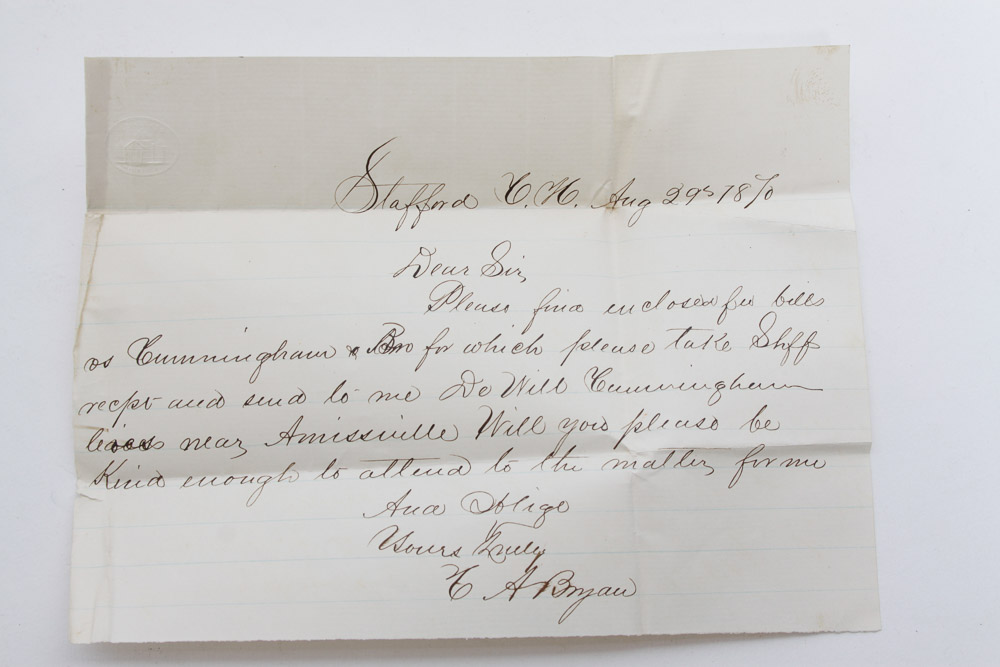 Stafford C. H. Aug 29th 1870
Dear Sir,
Please find enclosed fee bills
vs Cunningham & Bro for which please take Shff
recpt and send to me De Will Cunningham
lives near Amissville Will you please be
Kind enough to attend to the matter for me
And Oblige
Yours Truly
C A Bryan